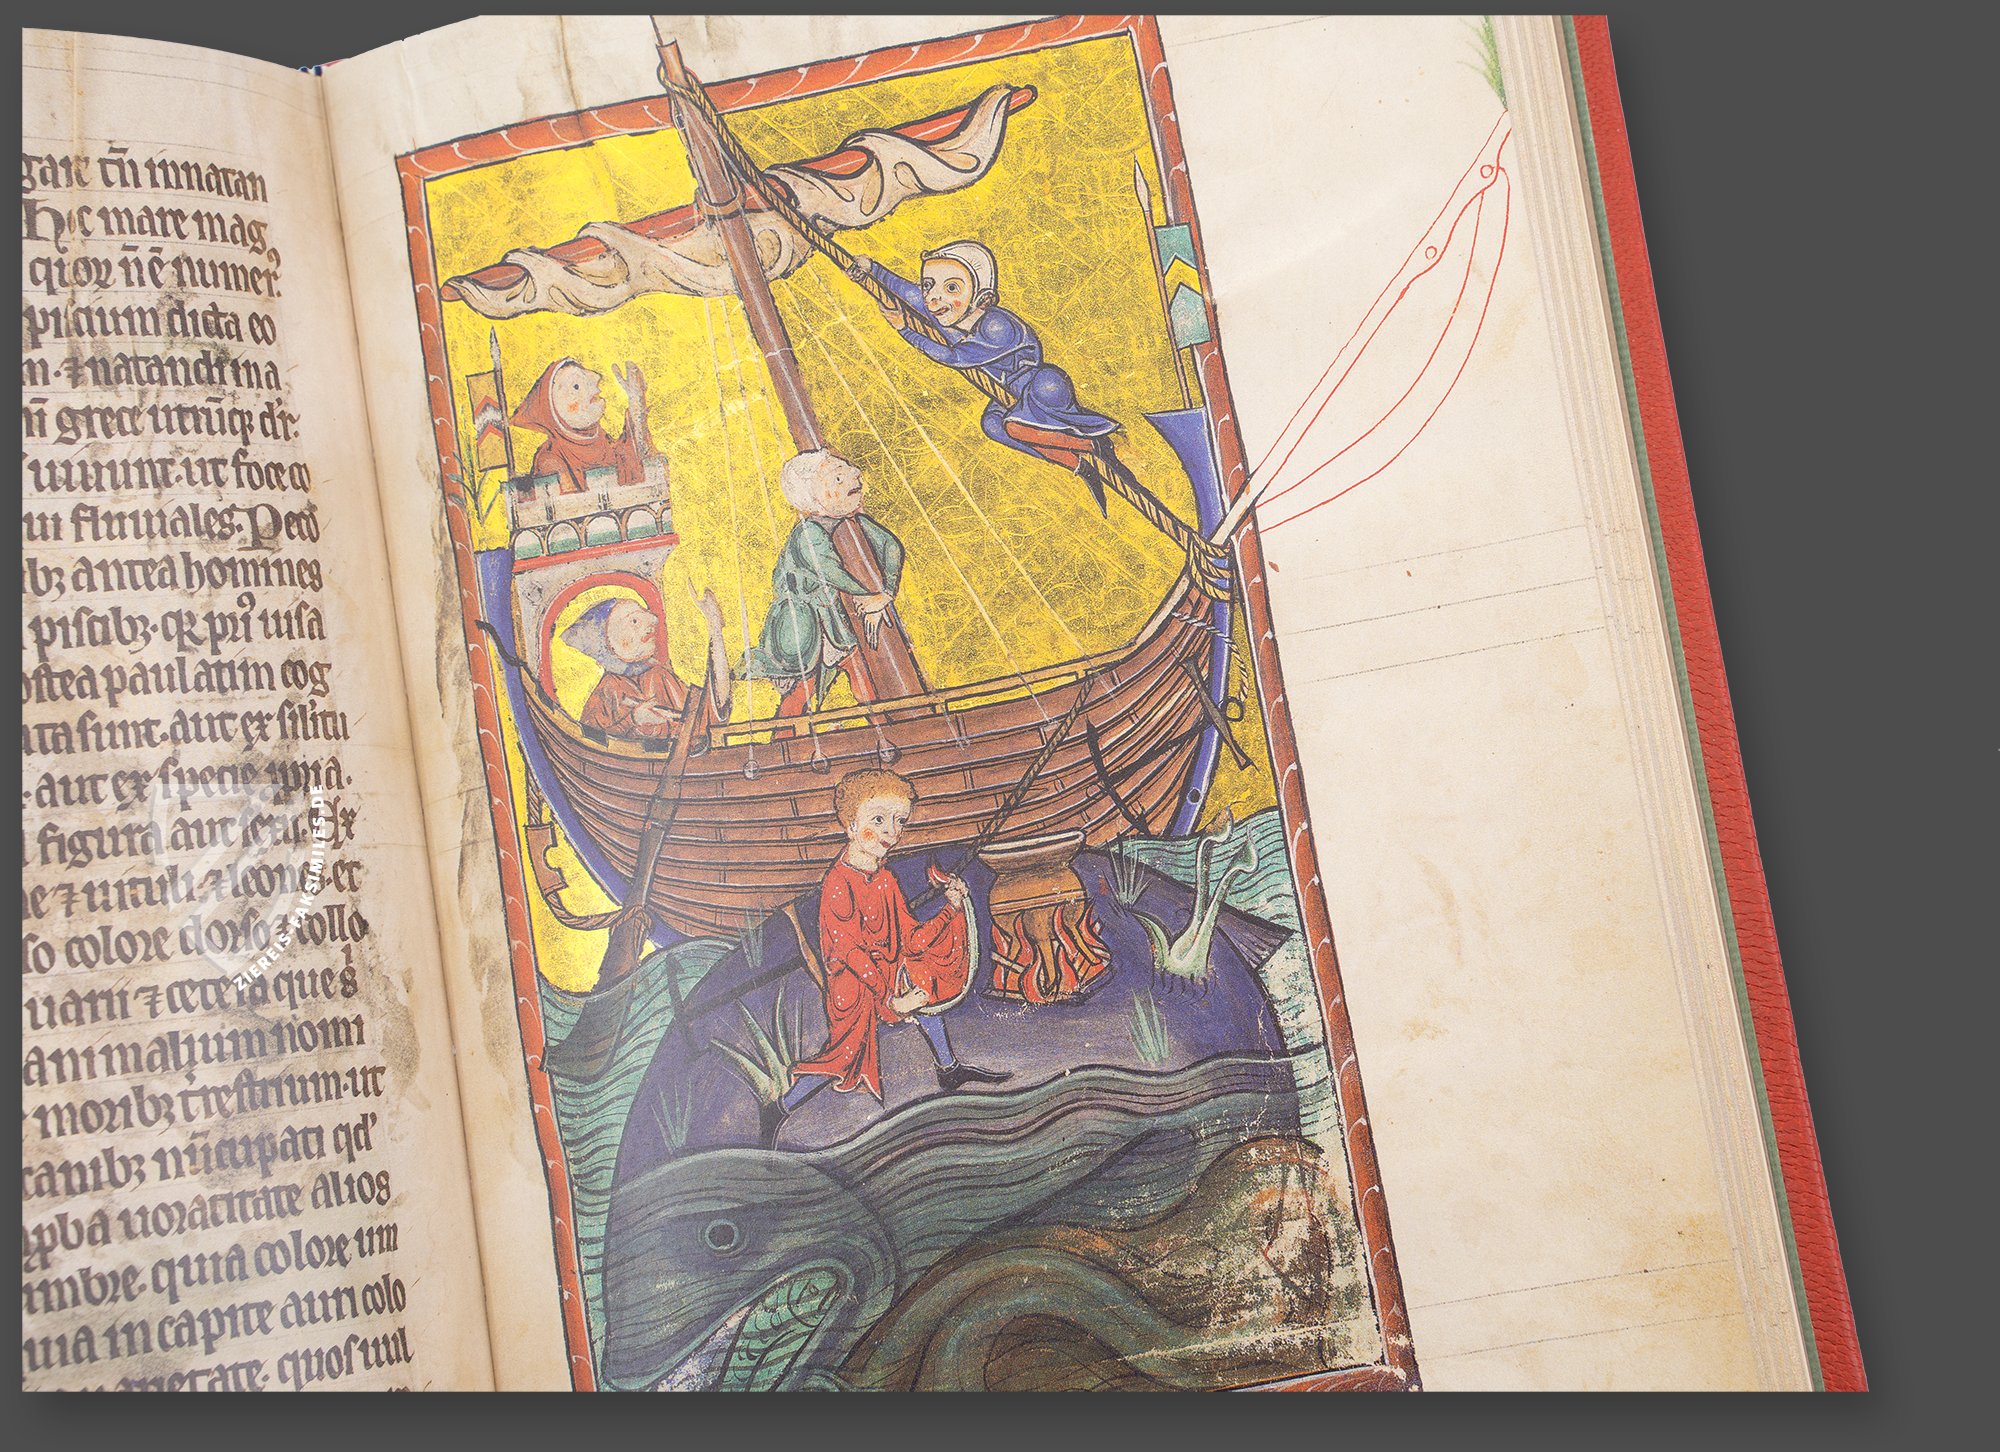 gare cū innatan
hoc mare mag
quor n̄ē numerꝰ
piscium dicta eo
m·⁊ natandi ina
grece utrūqꝫ dr̄·
uiuunt·ut foce co
ui fluuiales·Peco
bꝫ antea homines
piscibꝫ·qꝛ priꝰ uisa
ostea paulatim cog
ata sunt·aut ex silitu
aut ex specie ip̄ia·
figura aut sexu·Ex
⁊ uituli·⁊ leones·et
so colore dorso ⁊ collo
uarii ⁊ cetera que s
animalium nomi
moribꝫ t̄restrium·ut
canibꝫ nūcupati qđ
uoracitate alios
umbre·quia colore um
uia in capite auri colo
uarietate·quos uul
ZIEREIS-FAKSIMILES.DE